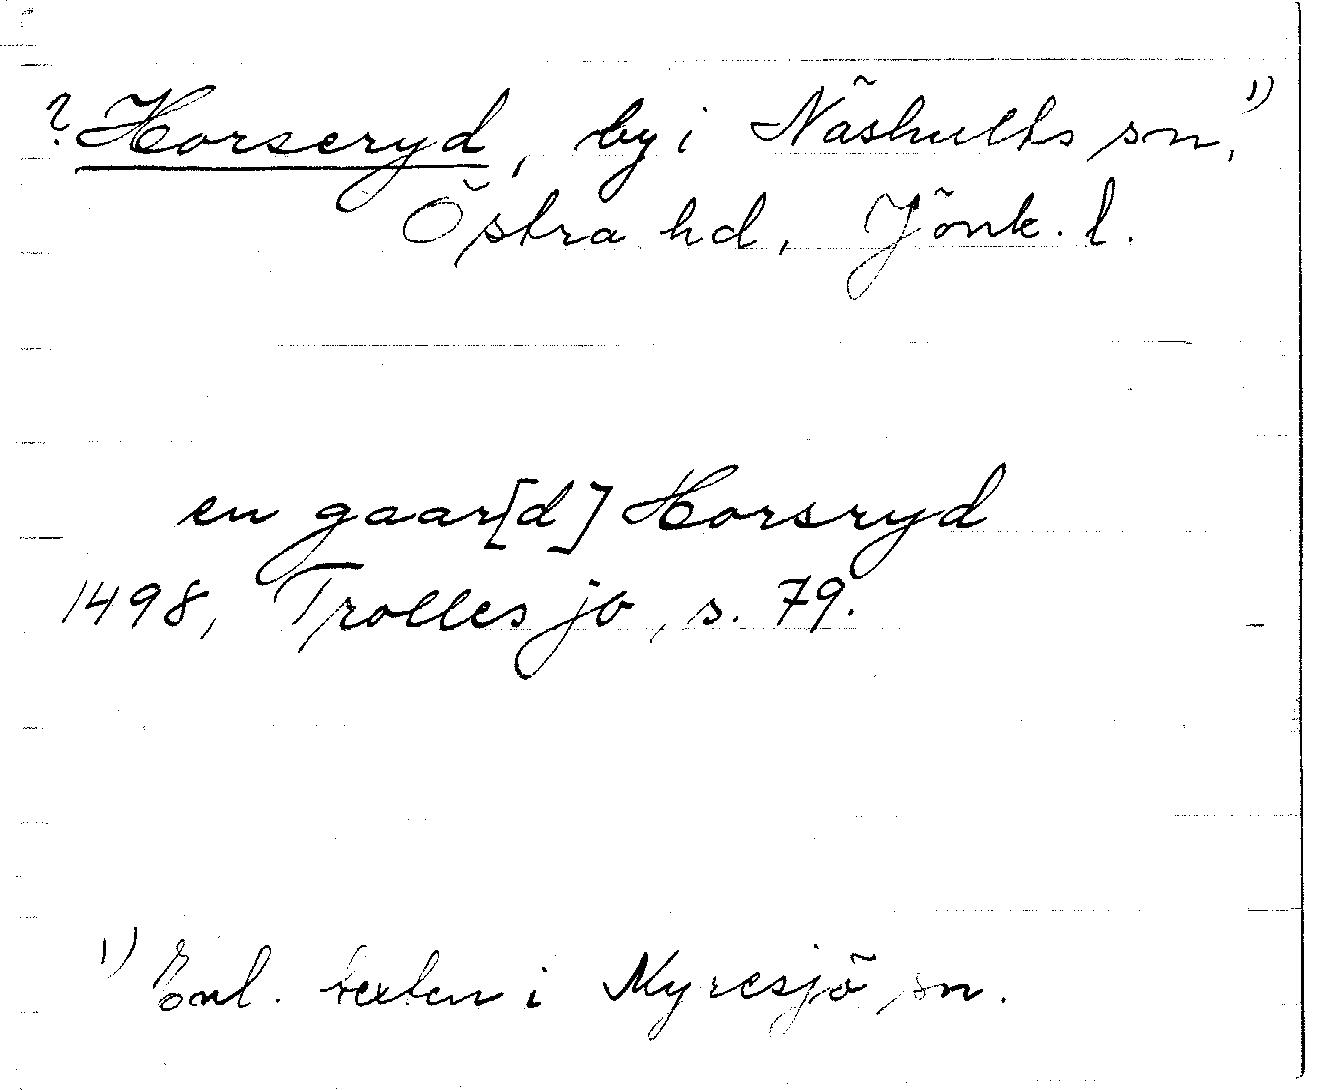 ? Horseryd, by i Näshults sn, 1)
Östra hd, Jönk. l.
en gaar[d] Horsryd
1498, Trolles jb, s. 79.
1) Enl. texten i Myresjö sn.